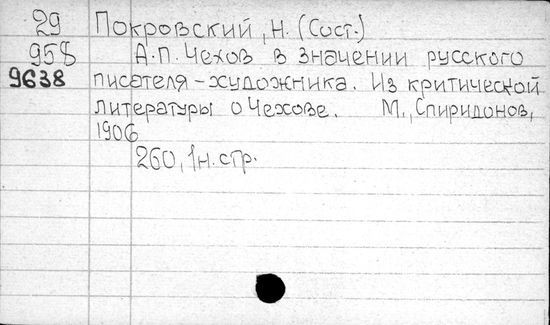 29 Покровский, Н. (Сост.)
958 А.П. Чехов в значении русского
9638 писателя-художника. Из критической
литературы о Чехове. М., Спиридонов,
1906
260, 1н. стр.